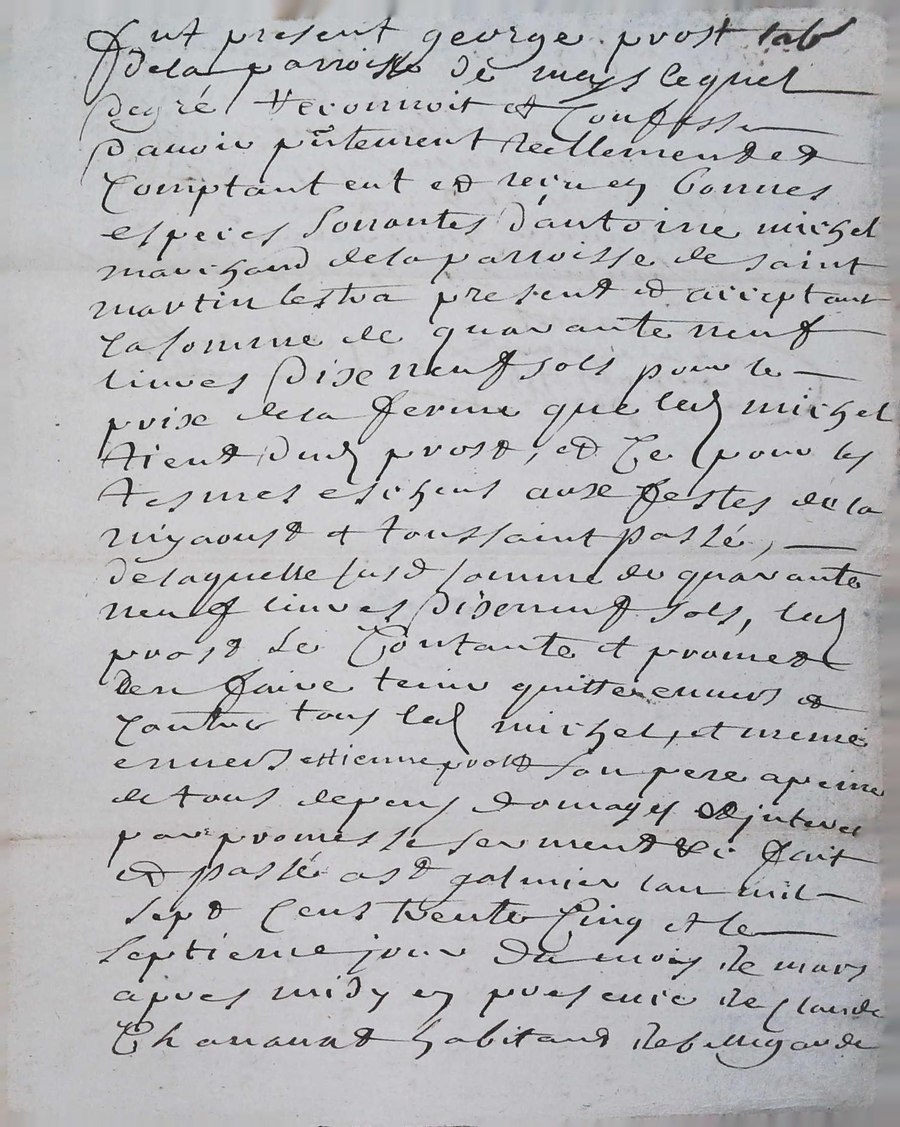 fut present george prost lab
dela parroisse de meys lequel
degré reconnoit et Confesse
davoir pntement reellement et
Comptant eut et reçu en bonnes
especes sonnantes d'antoine michel
marchand dela parroisse de saint
martin lestra present et acceptant
la somme de quarante neuf
livres dixe neuf sols pour le
prixe dela ferme que led michel
tient dud prost, et Ce pour les
termes escheus auxe festes de la
my aoust et toussaint passé,
de laquelle susd somme de quarante
neuf livres dixeneuf sols, led
prost se Contante et promet
den faire tenir quitte envers et
Contre tous led michel, et meme
envers ettienne prost son pere a peine
de tous depens domages et interet
par promesse serment &c fait
et passé a st galmier lan mil
sept Cens trente Cinq et le
septieme jour du mois de mars
apres midy en presence de claude
habitant de bellegarde